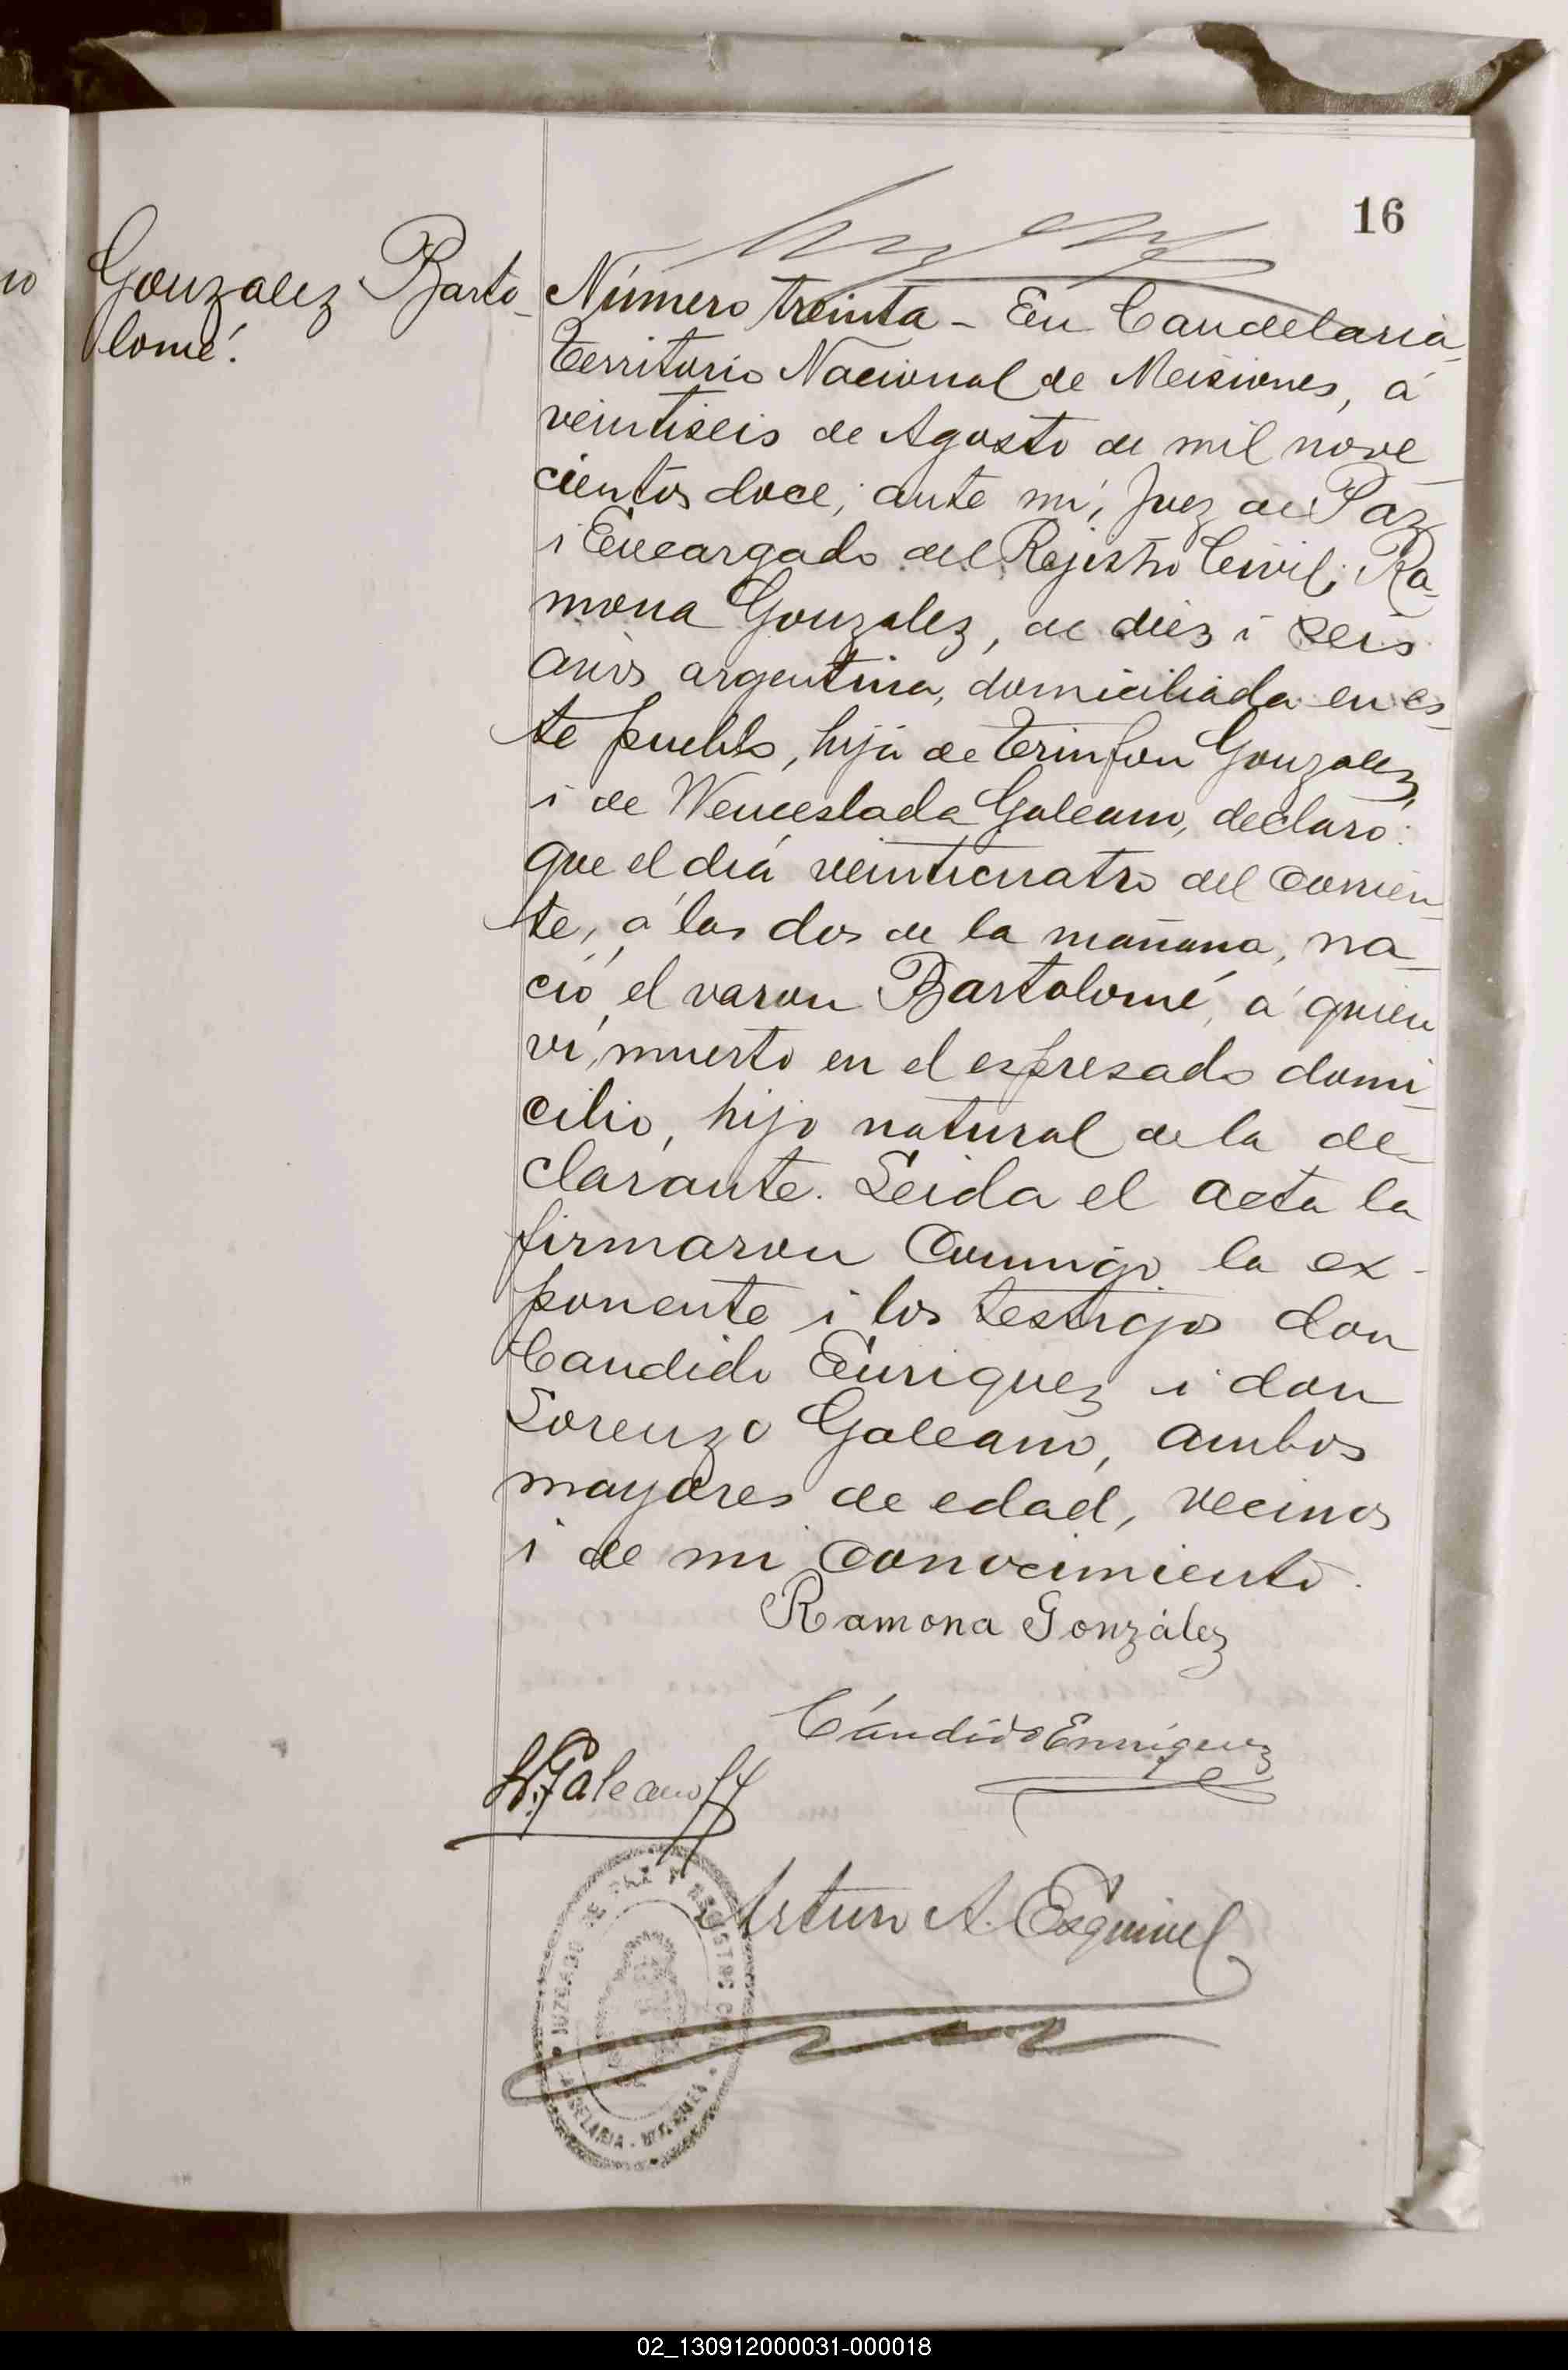 16
Gonzalez Barto-
lomé.
Número treinta - En Candelaria,
Territorio Nacional de Misiones, á
veintiseis de Agosto de mil nove-
cientos doce, ante mí, Juez de Paz
i Encargado del Rejistro Civil, Ra-
mona Gonzalez, de diez i seis
años argentina, domiciliada en es-
te pueblo, hija de Gonzalez,
i de Wenceslada Galeano, declaró:
que el dia veinticuatro del corrien-
te, á las dos de la mañana, na-
ció el varon Bartolomé, á quien
ví, muerto en el espresado domi-
cilio, hijo natural de la de-
clarante. Leida el acta la
firmaron conmigo la ex-
ponente i los testigos don
Candido Enriquez i don
Lorenzo Galeano, ambos
mayores de edad, vecinos
i de mi conocimiento.
Ramona González
Cándido Enriquez
L. Galeano
Arturo A. Esquivel
JUZGADO DE PAZ Y REGISTRO CIVIL
CANDELARIA - MISIONES
02_130912000031-000018